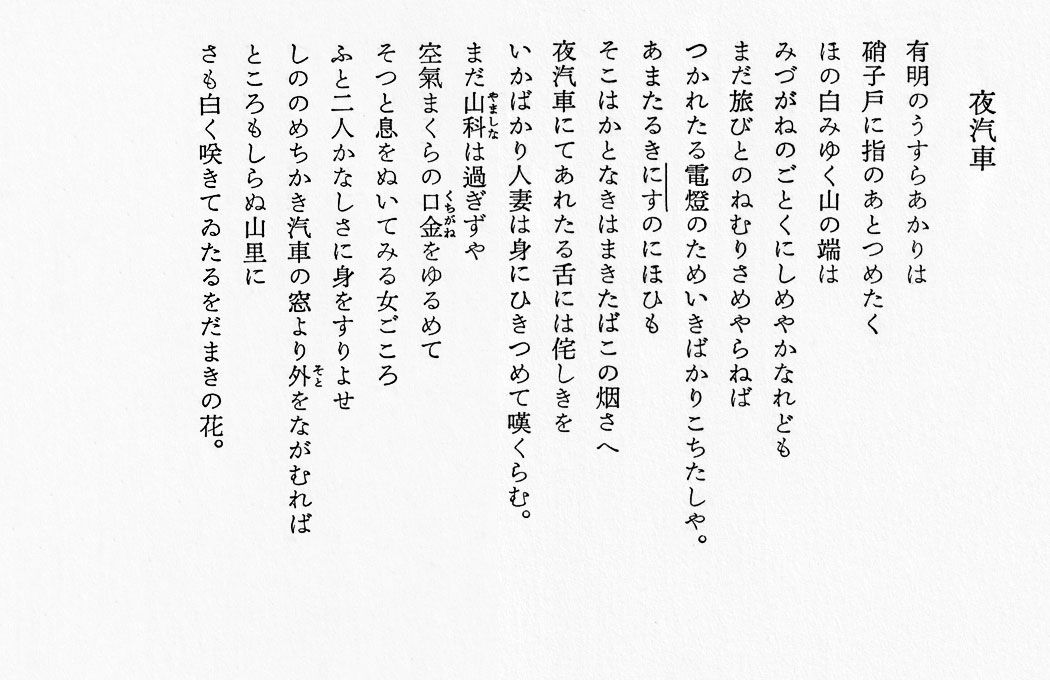 夜汽車
有明のうすらあかりは
硝子戸に指のあとつめたく
ほの白みゆく山の端は
みづがねのごとくにしめやかなれども
まだ旅びとのねむりさめやらねば
つかれたる電燈のためいきばかりこちたしや。
あまたるきにすのにほひも
そこはかとなきはまきたばこの烟さへ
夜汽車にてあれたる舌には侘しきを
いかばかり人妻は身にひきつめて嘆くらむ。
まだ山科は過ぎずや
空氣まくらの口金をゆるめて
そつと息をぬいてみる女ごころ
ふと二人かなしさに身をすりよせ
しののめちかき汽車の窓より外をながむれば
ところもしらぬ山里に
さも白く咲きてゐたるをだまきの花。